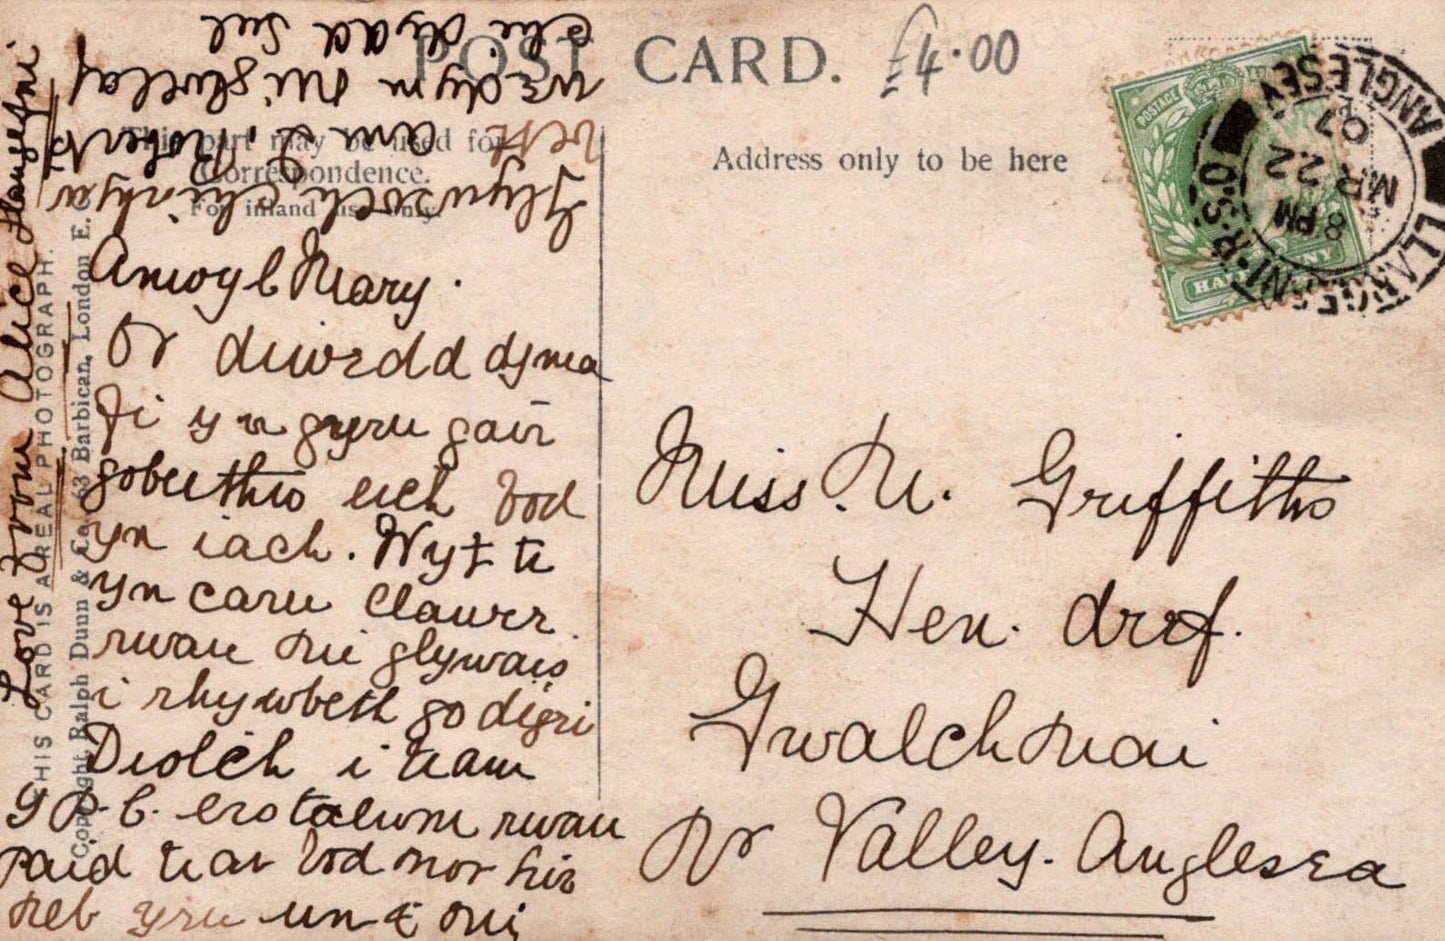 POST CARD.
£4.00
This part may be used for
Correspondence.
For inland use only.
Address only to be here
LLANGEFNI·R·S·O
ANGLESEY
8 PM
MR 22
07
POSTAGE
HALFPENNY
THIS CARD IS A REAL PHOTOGRAPH.
Copyright, Ralph Dunn & Co. 63 Barbican, London E.C.
Anwyl Mary.
Or diwedd dyma
fi yn gyru gair
gobeithio eich bod
yn iach. Wyt ti
yn caru Clawrr
rwan mi glywais
i rhywbeth go digri
Diolch i tiam
y P.C. ers talwm rwan
paid tiar bod mor hir
heb yru un i mi
Glywsoch chi
am E. Roberts
wedyn mi glywes
chi dyad Sul
Love from Alice Llangefni
Miss M. Griffiths
Hen. dref.
Gwalchmai
Nr Valley. Anglesea